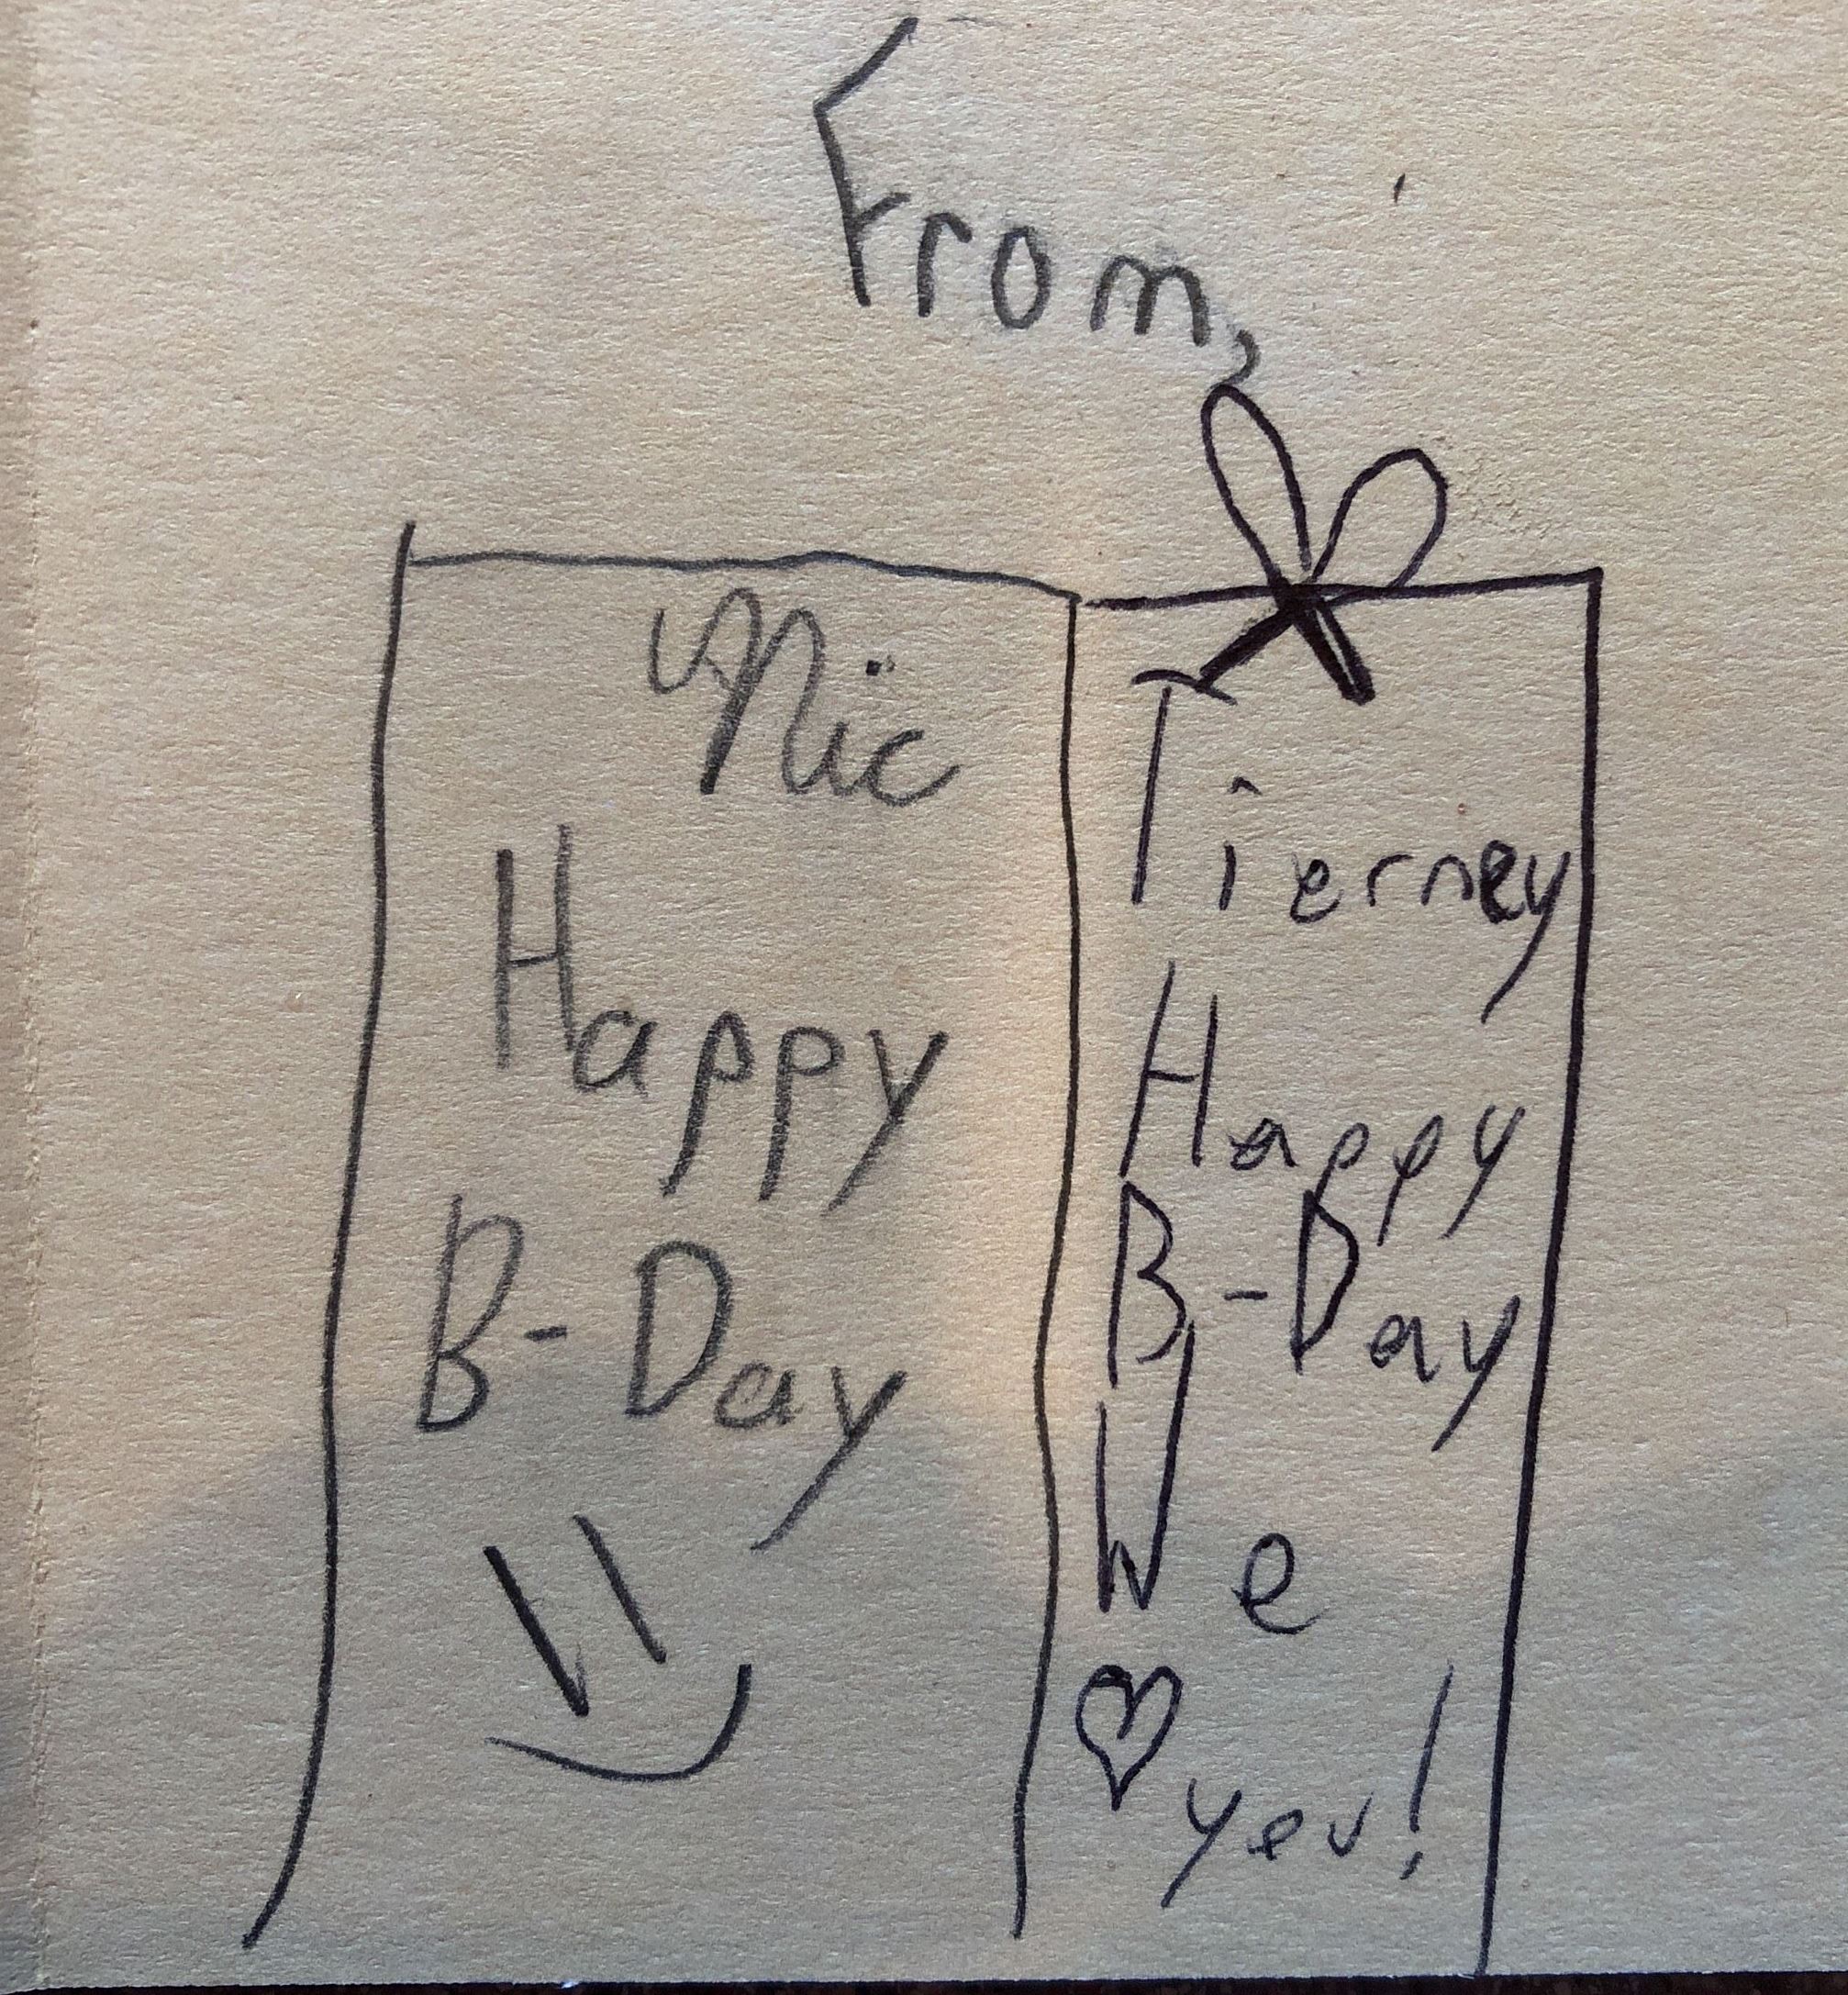 From,
Nic
Happy
B-Day
Tierney
Happy
B-Day
We
♡ you!